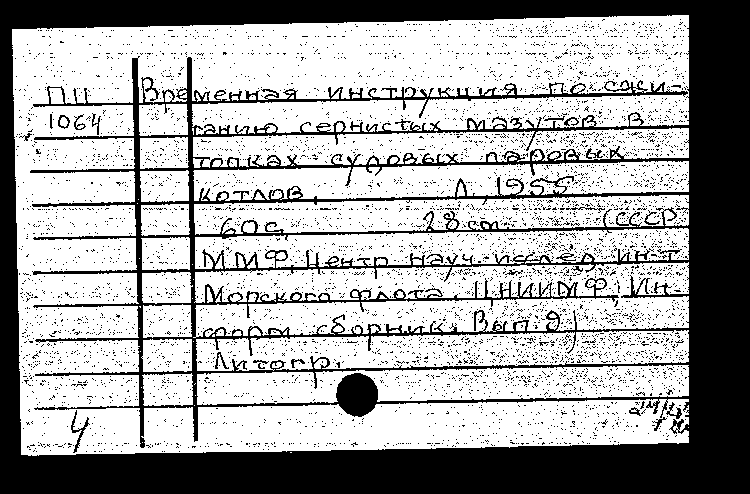 ПП Временная инструкция по сжи-
1064 ганию сернистых мазутов в
топках судовых паровых
котлов. Л., 1955
60с. 28 cm. (СССР
ММФ. Центр. науч.-исслед. ин-т
Морского флота. ЦНИИМФ. Ин-
форм. сборник. Вып. 9)
Литогр.
4